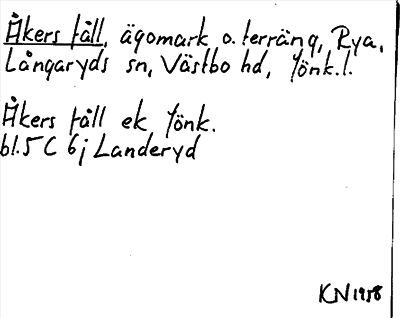 Åkers fåll, ägomark o. terräng, Rya,
Långaryds sn, Västbo hd, Jönk.l.
Åkers fåll ek Jönk.
bl.5C 6j Landeryd
KN 1958